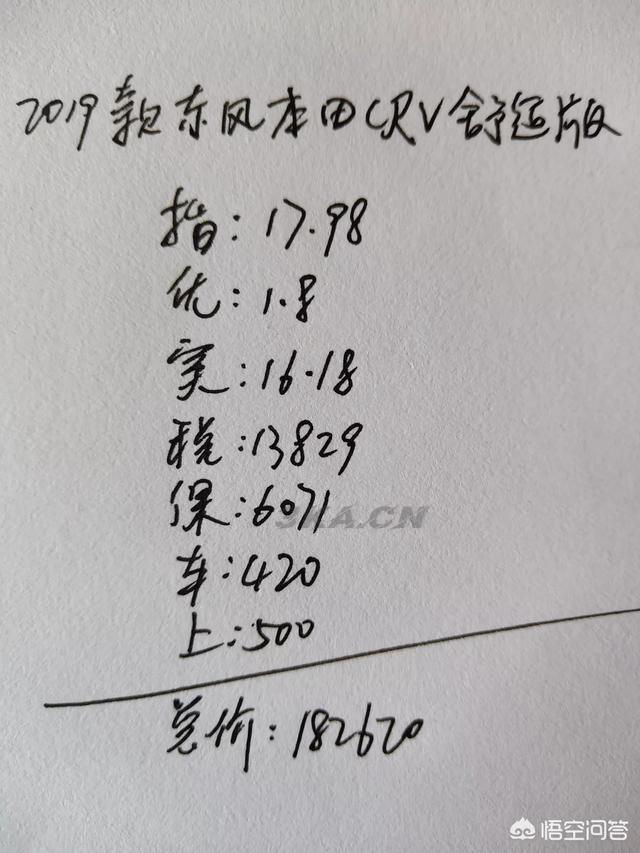 2019款东风本田CRV舒适版
指:17.98
优:1.8
实:16.18
税:13829
保:6071
车:420
上:500
总价:182620
悟空问答